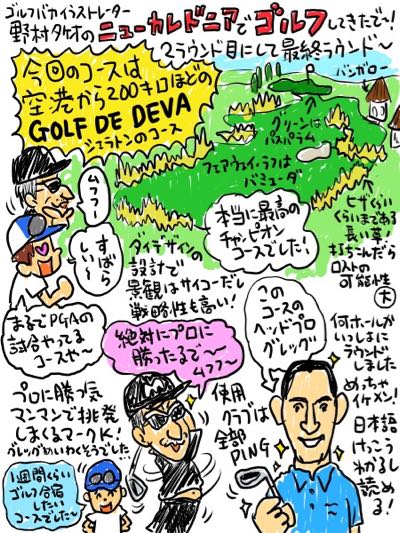 ゴルフバカイラストレーター
野村タケオのニューカレドニアでゴルフしてきたで〜!
2ラウンド目にして最終ラウンド〜
今回のコースは
空港から200キロほどの
GOLF DE DEVA
シェラトンのコース
バンガロー
グリーンは
パスパラム
フェアウェイ・ラフは
バミューダ
ヒザぐらい
くらいまである
長い草!
打ちこんだら
ロストの
可能性
大
ムフフー
すばら
しい〜
本当に最高の
チャンピオン
コースでした!
ダイデザインの
設計で
景観はサイコーだし
戦略性も高い!
まるでPGAの
試合やってる
コースや〜
絶対にプロに
勝ったるで〜
ムフフ〜
この
コースの
ヘッドプロ
グレッグ!
何ホールか
いっしょに
ラウンドしました
めっちゃ
イケメン!
日本語
けっこう
わかるし
読める!
プロに勝つ気
マンマンで挑発
しまくるマークK!
グレッグめいわくそうでした
使用
クラブは
全部
PING
1週間くらい
ゴルフ合宿
したい
コースでした〜